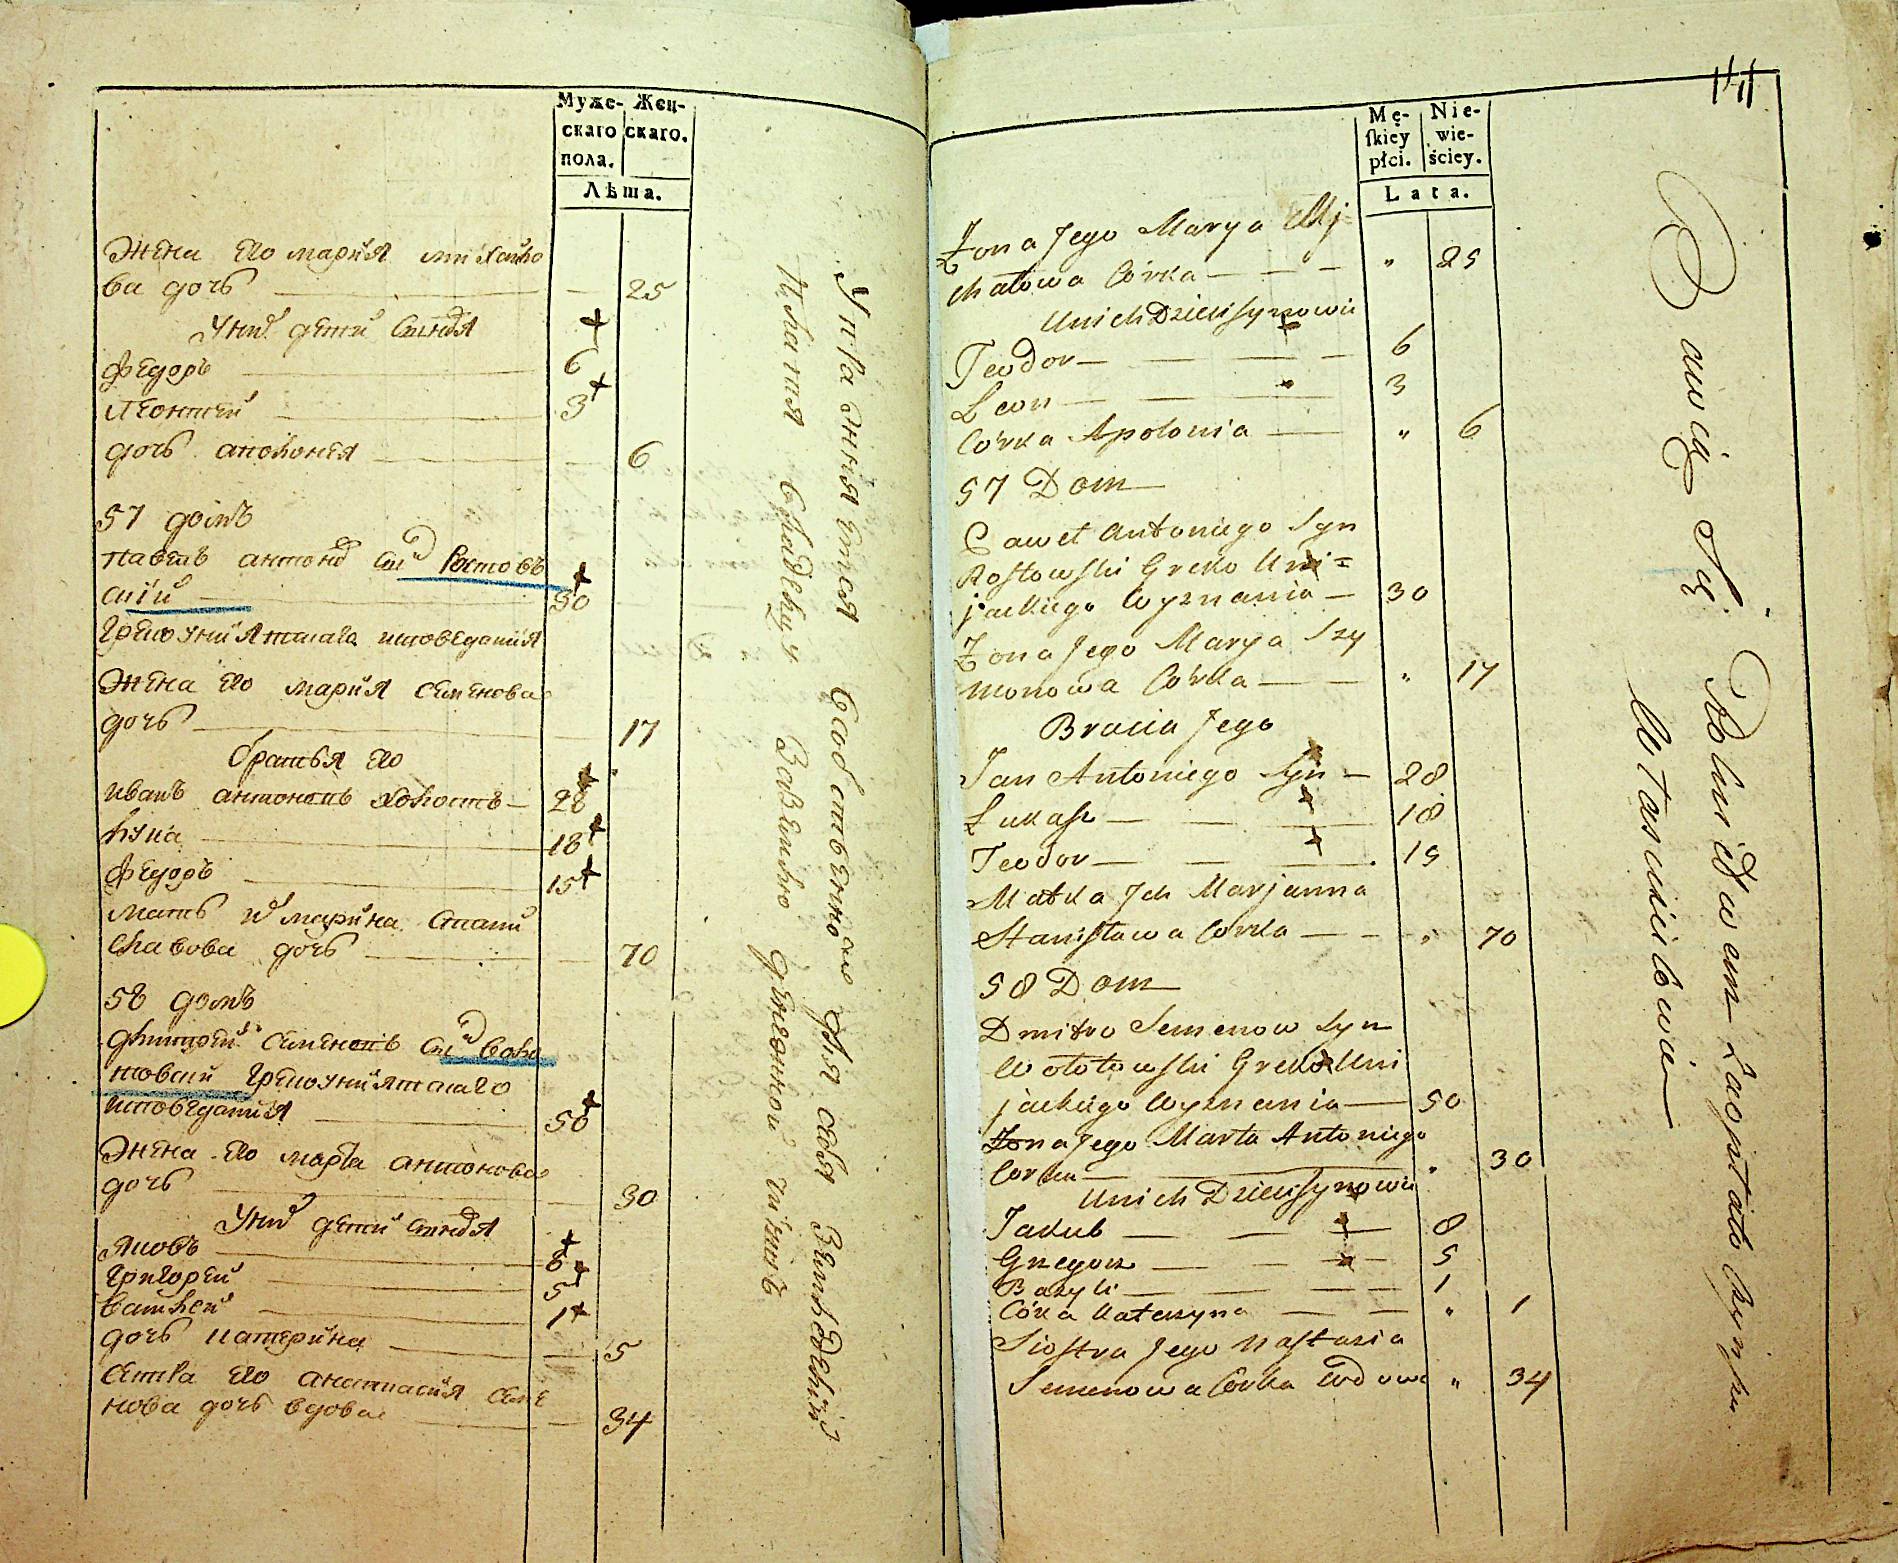 Муже-
скаго
пола.
Жен-
скаго.
Лѣта.
Жена Его мария михайло
ва дочь — 25
У них дети Сыновья
Федоръ — 6
Леонтей — 3
дочь аполония — 6
57 домъ
павелъ антонов Сын Ростовъ
ский — 30
Грекоуниятскаго исповедания
Жена Его мария семенова
дочь — 17
братья Его
иванъ антоновъ холостъ — 28
лука — 18
Федоръ — 15
мать их марина Стани
славова дочь — 70
58 домъ
дмитрей семеновъ Сын Воло
товский Грекоуниятскаго
исповедания — 50
Жена Его марта антонова
дочь — 30
У них дети Сыновья
Яковъ — 8
Григорей — 5
Василей — 1
дочь катерина — 5
Сестра Его анастасия Семе
нова дочь вдова — 34
Упражняется Собственно для себя Земледелия
Платит Владельцу
14
Mę-
skiey
płci.
Nie-
wie-
ściey.
Lata.
Żona Jego Marya Mj
chałowa Córka — " 25
Unich Dzieci Synowie
Teodor — 6
Leon — 3
Córka Apolonia — " 6
57 Dom
Paweł Antoniego Syn
Rostowski Greko Uni=
jackiego Wyznania — 30
Żona Jego Marya Szy
monowa Córka — " 17
Bracia Jego
Jan Antoniego Syn — 28
Łukasz — 18
Teodor — 15
Matka Jch Marjanna
Stanisława Corka — " 70
58 Dom
Dmitro Semenow Syn
Wołotowski Greko Uni
jackiego Wyznania — 50
Żona Jego Marta Antoniego
Corka — " 30
Unich Dzieci Synowie
Jakub — 8
Gregorz — 5
Bazyli — 1
Córka Katerzyna — " 1
Siostra Jego Nastazia
Semenowa Córka Wdowa " 34
Bawią Się Rolnictwem Zapłatą Czynszu